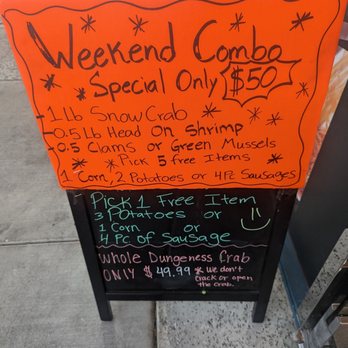 Weekend Combo
Special Only $50
- 1 lb Snow Crab
- 0.5 lb Head On Shrimp
- 0.5 Clams or Green Mussels
Pick 5 free Items
1 Corn, 2 Potatoes or 4 Pc Sausages
Pick 1 Free Item
3 Potatoes or
1 Corn or
4 Pc. of Sausage
Whole Dungeness Crab
ONLY $49.99 * We don't
crack or open
the crab.